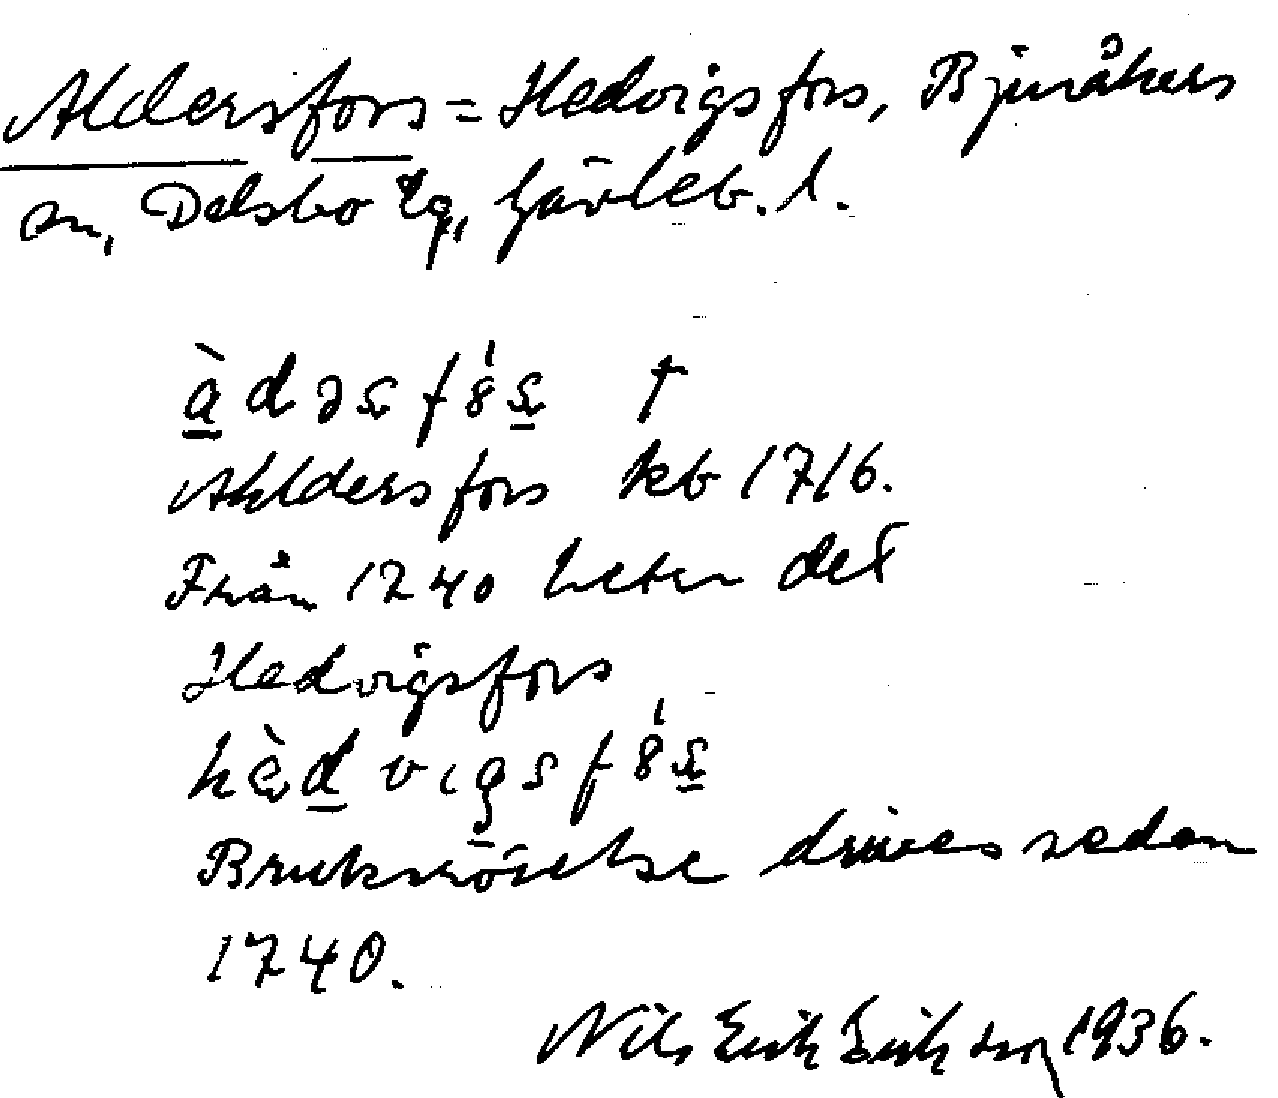 Aldersfors = Hedvigsfors, Bjuråkers
sn, Delsbo tg, Gävleb. l.
Ahldersfors kb 1716.
Från 1740 heter det
Hedvigsfors
Bruksrörelse drives sedan
1740.
Nils Erik Erikson 1936.